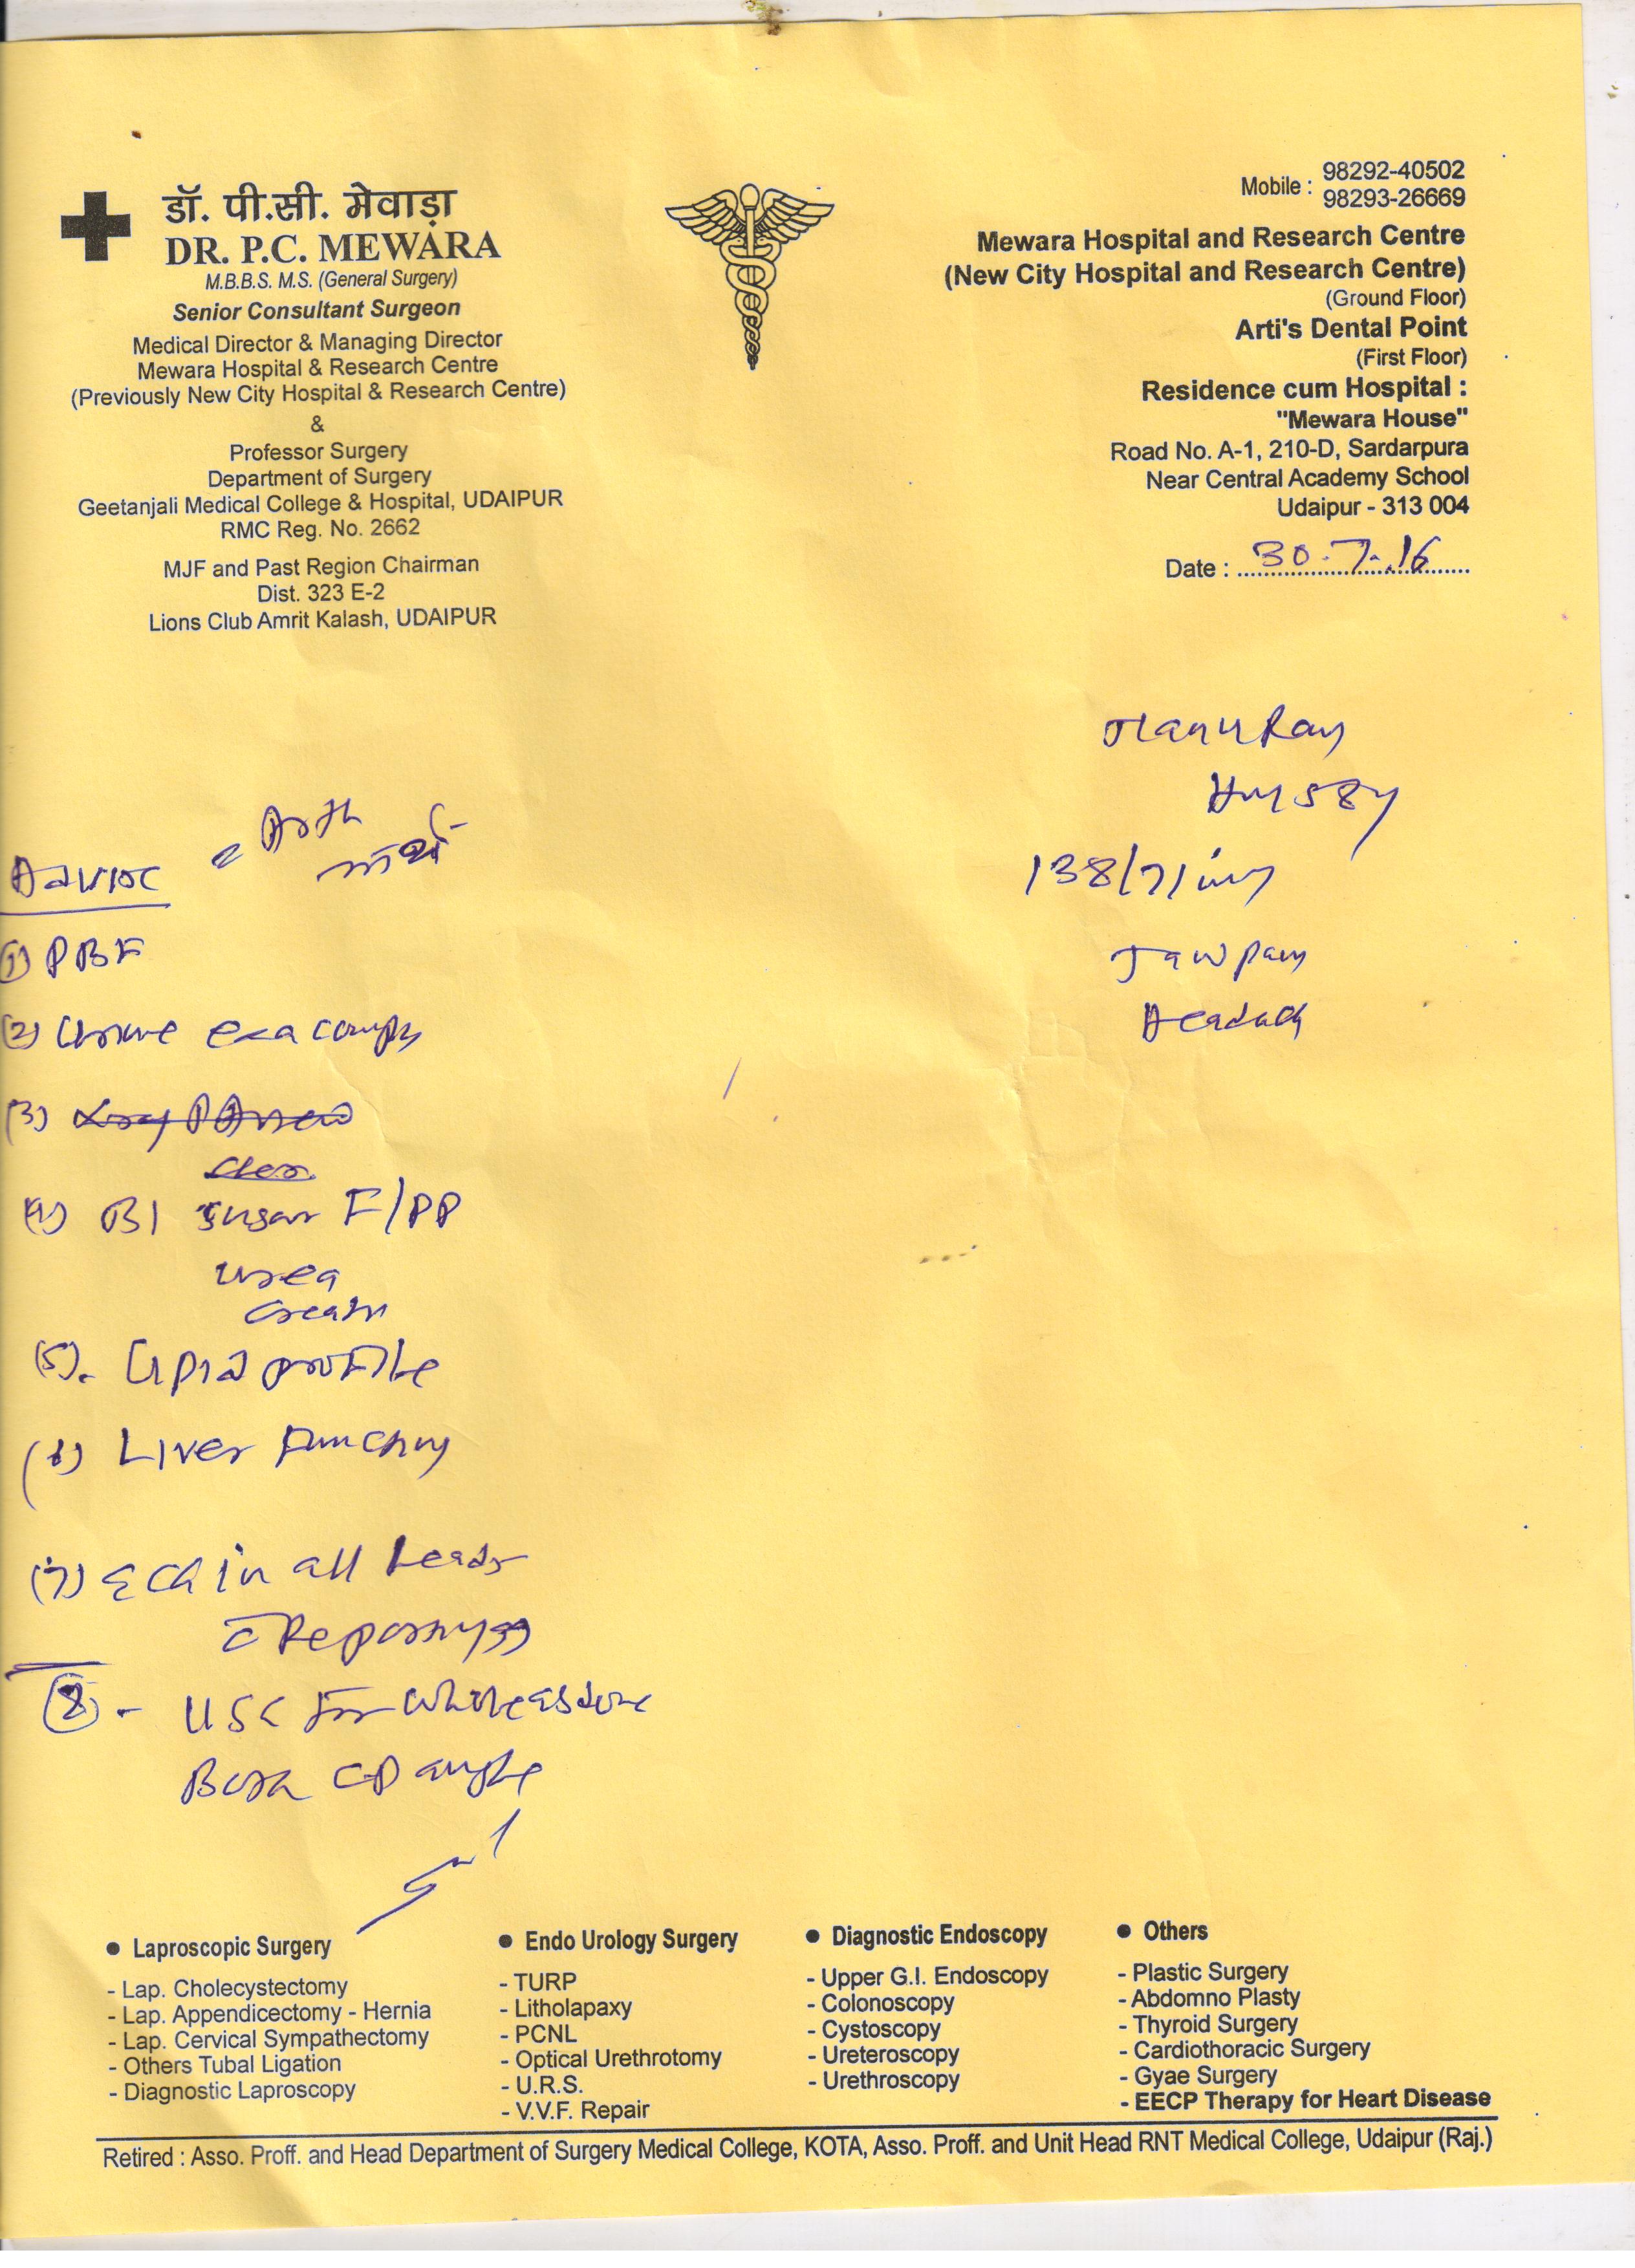 डॉ. पी.सी. मेवाड़ा
DR. P.C. MEWARA
M.B.B.S. M.S. (General Surgery)
Senior Consultant Surgeon
Medical Director & Managing Director
Mewara Hospital & Research Centre
(Previously New City Hospital & Research Centre)
&
Professor Surgery
Department of Surgery
Geetanjali Medical College & Hospital, UDAIPUR
RMC Reg. No. 2662
MJF and Past Region Chairman
Dist. 323 E-2
Lions Club Amrit Kalash, UDAIPUR
Mobile : 98292-40502
98293-26669
Mewara Hospital and Research Centre
(New City Hospital and Research Centre)
(Ground Floor)
Arti's Dental Point
(First Floor)
Residence cum Hospital :
"Mewara House"
Road No. A-1, 210-D, Sardarpura
Near Central Academy School
Udaipur - 313 004
Date : 30.7.16
58y
138/71
Jaw pain
(1) PBF
(2) Urine
(3)
(4) Bl sugar F/PP
urea
(5). Lipid profile
(6) Liver
(7) ECG in all Leads
(8) - USG For
● Laproscopic Surgery
- Lap. Cholecystectomy
- Lap. Appendicectomy - Hernia
- Lap. Cervical Sympathectomy
- Others Tubal Ligation
- Diagnostic Laproscopy
● Endo Urology Surgery
- TURP
- Litholapaxy
- PCNL
- Optical Urethrotomy
- U.R.S.
- V.V.F. Repair
● Diagnostic Endoscopy
- Upper G.I. Endoscopy
- Colonoscopy
- Cystoscopy
- Ureteroscopy
- Urethroscopy
● Others
- Plastic Surgery
- Abdomno Plasty
- Thyroid Surgery
- Cardiothoracic Surgery
- Gyae Surgery
- EECP Therapy for Heart Disease
Retired : Asso. Proff. and Head Department of Surgery Medical College, KOTA, Asso. Proff. and Unit Head RNT Medical College, Udaipur (Raj.)